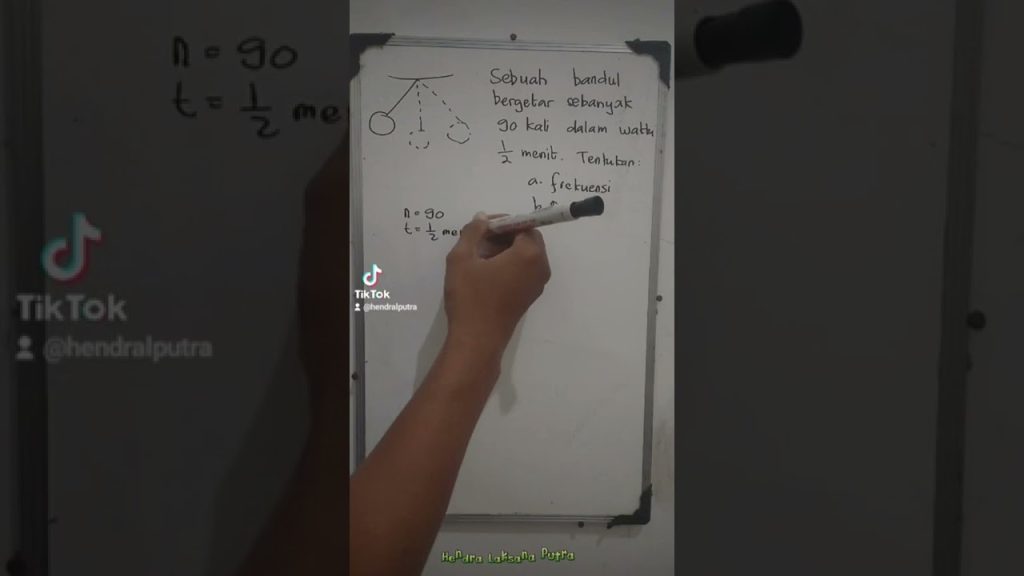 n = 90
t = 1/2 me
Sebuah bandul
bergetar sebanyak
90 kali dalam waktu
1/2 menit. Tentukan:
a. frekuensi
b.
n = 90
t = 1/2 me
TikTok
@hendralputra
TikTok
@hendralputra
Hendra Laksana Putra